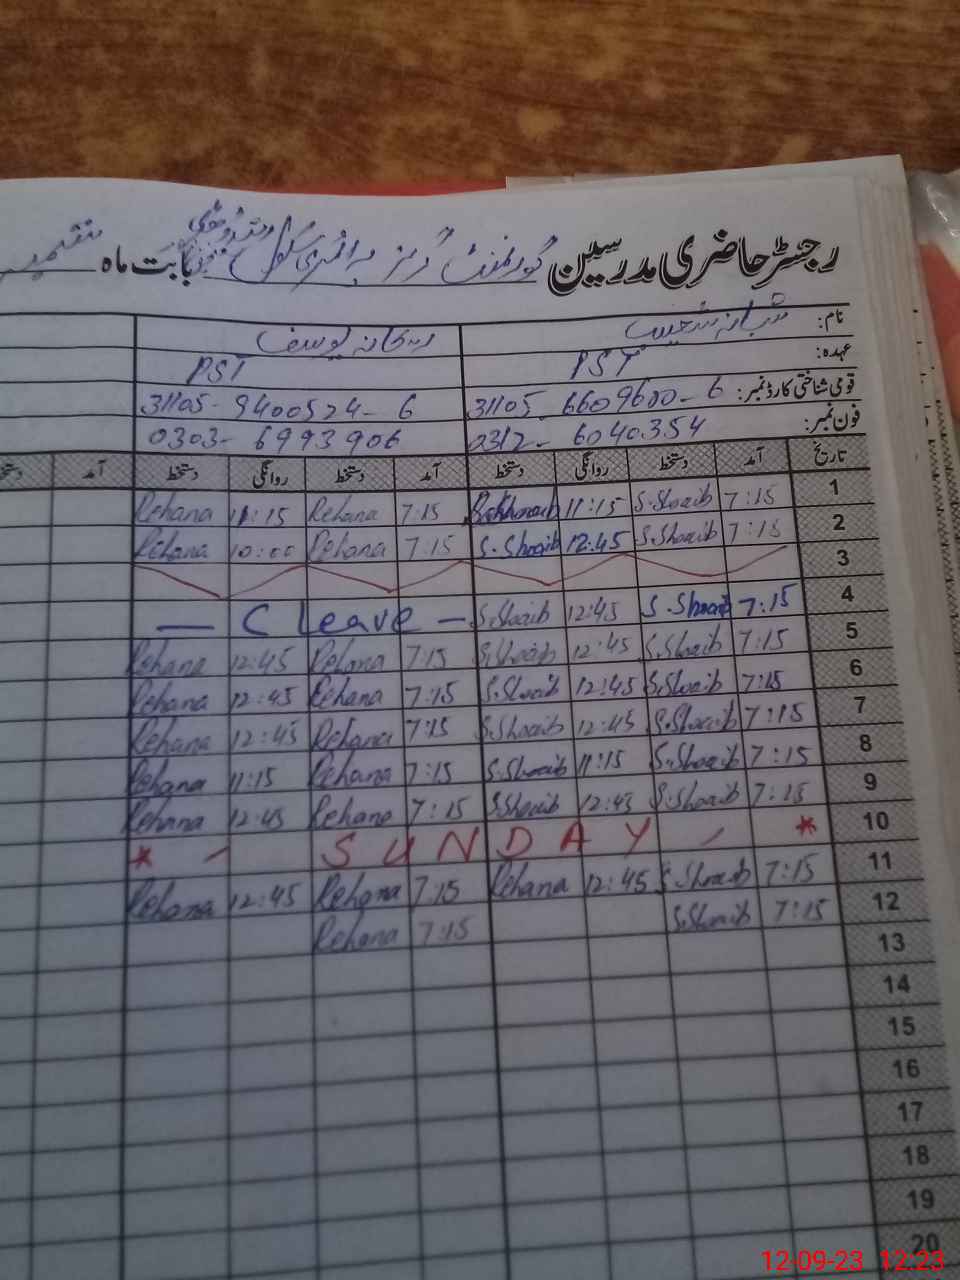 رجسٹر حاضری مدرسین گورنمنٹ گرلز پرائمری سکول بابت ماہ ستمبر
نام: شبانہ شعیب ریحانہ یوسف
عہدہ: PST PST
قومی شناختی کارڈ نمبر: 31105-6609600-6 31105-9400524-6
فون نمبر: 0312-6040354 0303-6993906
تاریخ آمد دستخط روانگی دستخط آمد دستخط روانگی دستخط آمد
1 7:15 S.Shoaib 11:15 7:15 Rehana 11:15 Rehana
2 7:15 S.Shoaib 12:45 S.Shoaib 7:15 Rehana 10:00 Rehana
3
4 7:15 S.Shoaib 12:45 S.Shoaib — C leave —
5 7:15 S.Shoaib 12:45 S.Shoaib 7:15 Rehana 12:45 Rehana
6 7:15 S.Shoaib 12:45 S.Shoaib 7:15 Rehana 12:45 Rehana
7 7:15 S.Shoaib 12:45 S.Shoaib 7:15 Rehana 12:45 Rehana
8 7:15 S.Shoaib 11:15 S.Shoaib 7:15 Rehana 11:15 Rehana
9 7:15 S.Shoaib 12:45 S.Shoaib 7:15 Rehana 12:45 Rehana
10 * - SUNDAY - *
11 7:15 S.Shoaib 12:45 Rehana 7:15 Rehana 12:45 Rehana
12 7:15 S.Shoaib 7:15 Rehana
13
14
15
16
17
18
19
20
12-09-23 12:23